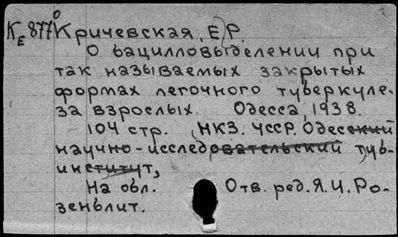 КЕ 877⁰ Кричевская, Е.Р.
О бацилловыделении при
так называемых закрытых
формах легочного туберкуле-
за взрослых. Одесса, 1938.
104 стр. НКЗ. УССР. Одесский
научно-исследовательский туб-
институт,
На обл. Отв. ред. Я.И. Ро-
зенблит.